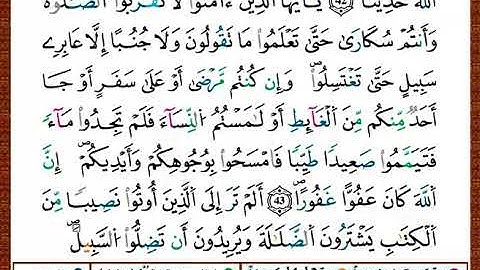 اللَّهَ حَدِيثًا ﴿٤٢﴾ يَا أَيُّهَا الَّذِينَ آمَنُوا لَا تَقْرَبُوا الصَّلَوٰةَ
وَأَنتُمْ سُكَارَىٰ حَتَّىٰ تَعْلَمُوا مَا تَقُولُونَ وَلَا جُنُبًا إِلَّا عَابِرِى
سَبِيلٍ حَتَّىٰ تَغْتَسِلُوا وَإِن كُنتُم مَّرْضَىٰ أَوْ عَلَىٰ سَفَرٍ أَوْ جَا
أَحَدٌ مِّنكُم مِّنَ الْغَآئِطِ أَوْ لَـٰمَسْتُمُ النِّسَآءَ فَلَمْ تَجِدُوا مَآءً
فَتَيَمَّمُوا صَعِيدًا طَيِّبًا فَامْسَحُوا بِوُجُوهِكُمْ وَأَيْدِيكُمْ إِنَّ
اللَّهَ كَانَ عَفُوًّا غَفُورًا ﴿43﴾ أَلَمْ تَرَ إِلَى الَّذِينَ أُوتُوا نَصِيبًا مِّنَ
الْكِتَـٰبِ يَشْتَرُونَ الضَّلَـٰلَةَ وَيُرِيدُونَ أَن تَضِلُّوا السَّبِيلَ